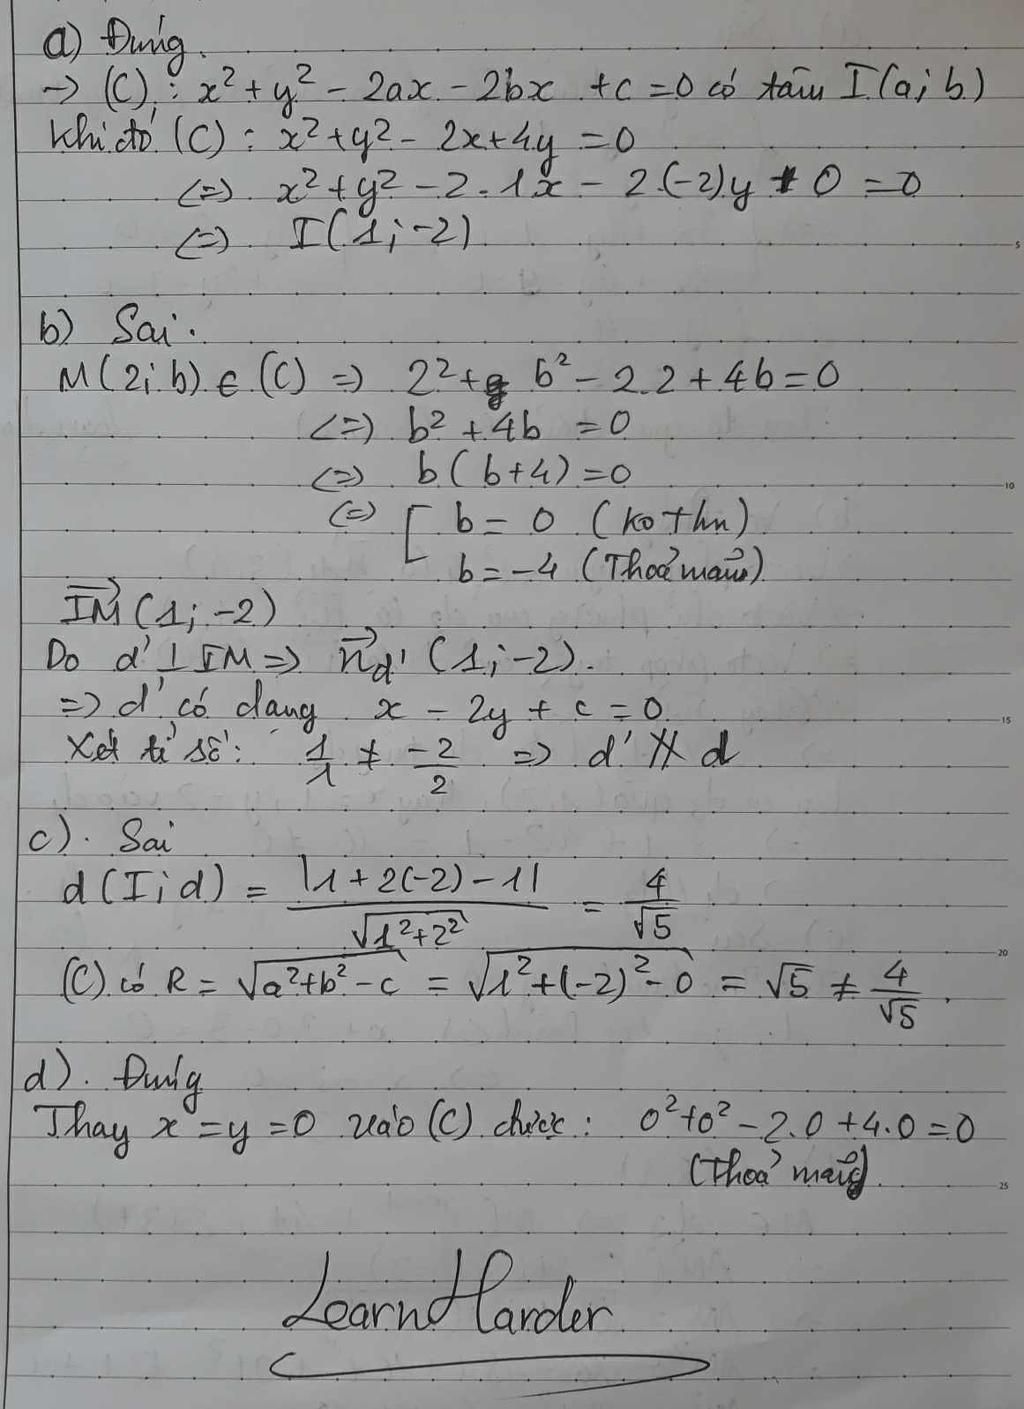 a) Đúng.
→ (C): x² + y² - 2ax - 2bx + c = 0 có tâm I(a; b)
Khi đó (C): x² + y² - 2x + 4y = 0
(=) x² + y² - 2.1x - 2.(-2)y + 0 = 0
(=) I(1; -2)
b) Sai.
M(2; b) ∈ (C) => 2² + b² - 2.2 + 4b = 0
<=> b² + 4b = 0
<=> b(b+4) = 0
(=) [ b = 0 (ko thm)
b = -4 (Thoả mãn)
IM→ (1; -2)
Do d' ⊥ IM => n→d' (1; -2).
=> d' có dạng x - 2y + c = 0
Xét tỉ số: 1/1 ≠ -2/2 => d' ∦ d
c). Sai
d(I; d) = |1 + 2(-2) - 1| / √(1² + 2²) = 4/√5
(C) có R = √(a² + b² - c) = √(1² + (-2)² - 0) = √5 ≠ 4/√5.
d). Đúng
Thay x = y = 0 vào (C) được: 0² + 0² - 2.0 + 4.0 = 0
(Thoả mãn)
Learn Harder
5
10
15
20
25